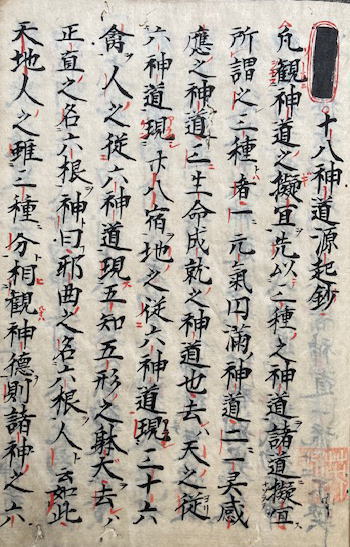 十八神道源起鈔
凢觀神道之擬宜先以三種之神道諸道擬宜
所謂之三種者一元氣円滿神道二灵感
應之神道三生命成就之神道也去ハ天之従
六神道現廿八宿地之従六神道現三十六
禽人之従六神道現五知五形之躰大去ハ
正直之名六根神曰邪曲之名六根人云如此
天地人之雖三種分相觀神德則諸神之六